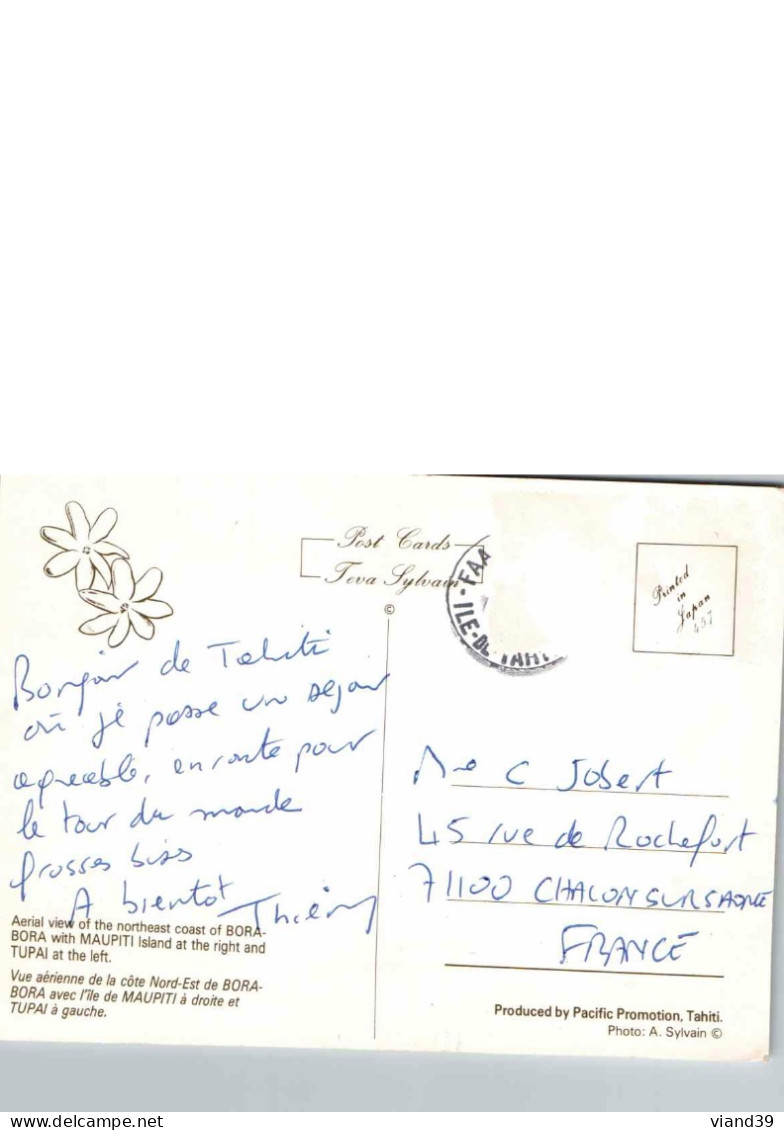 Post Cards
Teva Sylvain
©
FAA
ILE-DE TAHI
Printed
in
Japan
457
Bonjour de Tahiti
où je passe un séjour
agréable, en route pour
le tour du monde
grosses bises
A bientot
Thierry
C Jobert
45 rue de Rochefort
71100 CHALON SUR SAONE
FRANCE
Aerial view of the northeast coast of BORA-
BORA with MAUPITI Island at the right and
TUPAI at the left.
Vue aérienne de la côte Nord-Est de BORA-
BORA avec l'île de MAUPITI à droite et
TUPAI à gauche.
Produced by Pacific Promotion, Tahiti.
Photo: A. Sylvain ©
delcampe.net
viand39